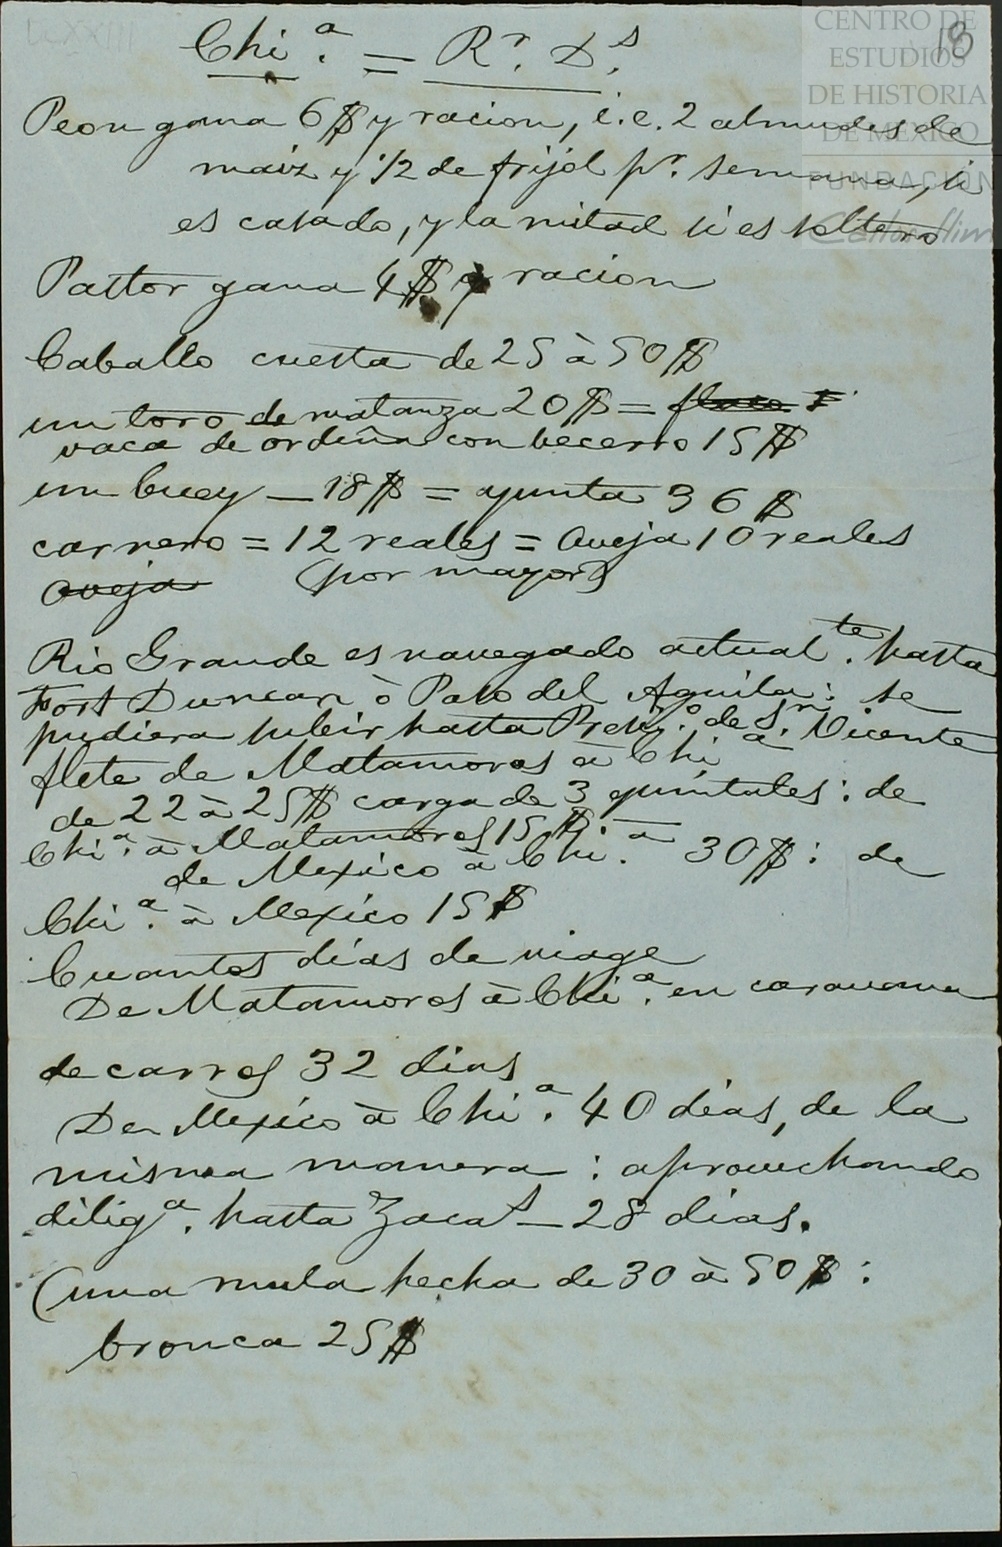 LXXIII
18
CENTRO DE
ESTUDIOS
DE HISTORIA
DE MEXICO
FUNDACIÓN
Carlos Slim
Chi.ª = Rr. Ds.
Peon gana 6$ y racion, i.e. 2 almudes de
maiz y 1/2 de frijol pr. semana, si
es casado, y la mitad si es soltero
Pastor gana 4$ y racion
Caballo cuesta de 25 à 50$
un toro de matanza 20$ =
vaca de ordeña con becerro 15$
un buey — 18$ = yunta 36$
carnero = 12 reales = oveja 10 reales
oveja (por mayor)
Rio Grande es navegado actualte. hasta
Fort Duncan ò Paso del Aguila: se
pudiera subir hasta Presio. de Sn. Vicente
flete de Matamoros à Chiª
de 22 à 25$ carga de 3 quintales: de
Chiª. à Matamoros 15$.
de Mexico à Chi.ª 30$: de
Chiª. à Mexico 15$
Cuantos dias de viage
De Matamoros à Chiª. en caravana
de carros 32 dias
De Mexico à Chiª. 40 dias, de la
misma manera: aprovechando
diligª. hasta Zacas — 28 dias.
(una mula hecha de 30 à 50$:
bronca 25$